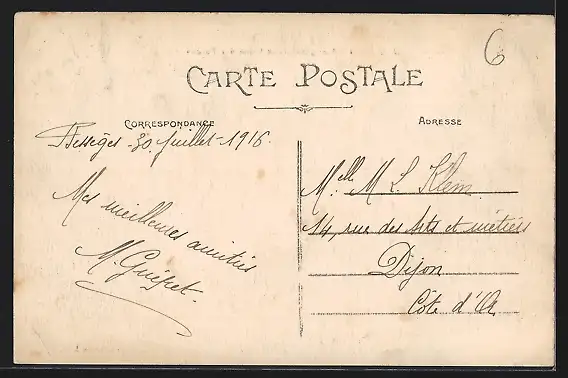 6
CARTE POSTALE
CORRESPONDANCE
ADRESSE
Bessèges - 30 Juillet - 1916.
Mes meilleures amitiés
M.
Melle M L. Klem
14, rue des Arts et métiers
Dijon
Côte d'Or